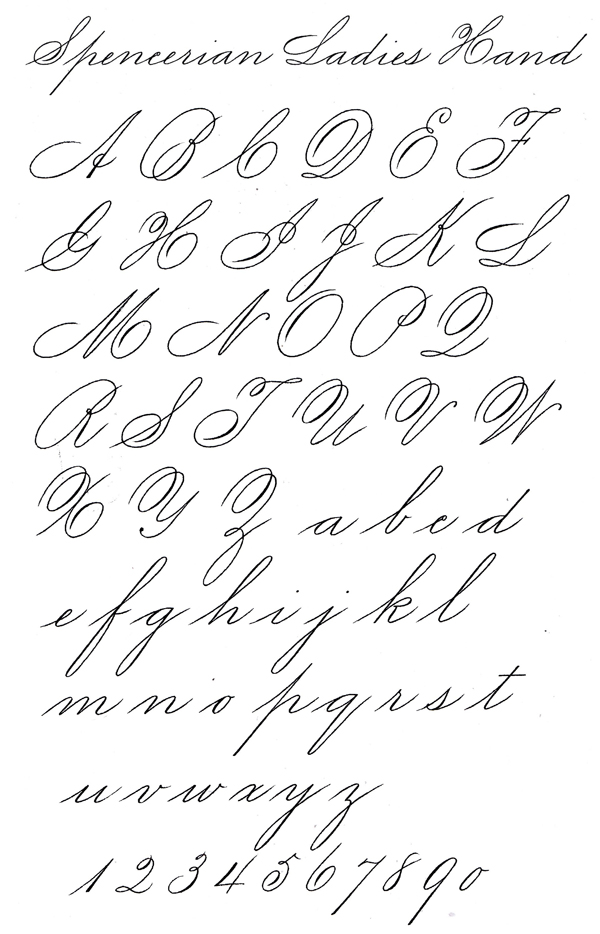 Spencerian Ladies Hand
A B C D E F
G H I J K L
M N O P Q
R S T U V W
X Y Z a b c d
e f g h i j k l
m n o p q r s t
u v w x y z
1 2 3 4 5 6 7 8 9 0